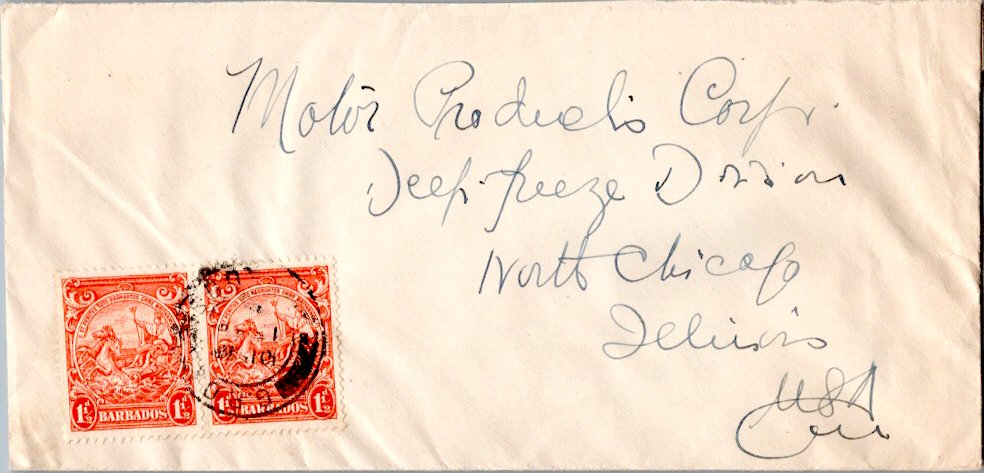 Motor Products Corpr.
Deep-freeze Division
North Chicago
Illinois
USA
1½ BARBADOS 1½
1½ BARBADOS 1½